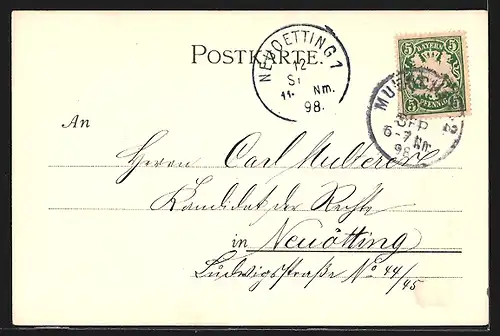 POSTKARTE.
NEUOETTING 1
12
11- Nm.
98.
5 BAYERN 5
5 PFENNIG 5
SEP
6-7 Nm
98
An
Herrn Carl
Kandidat der Rechte
in Neuötting
Ludwigsstraße No 44/45